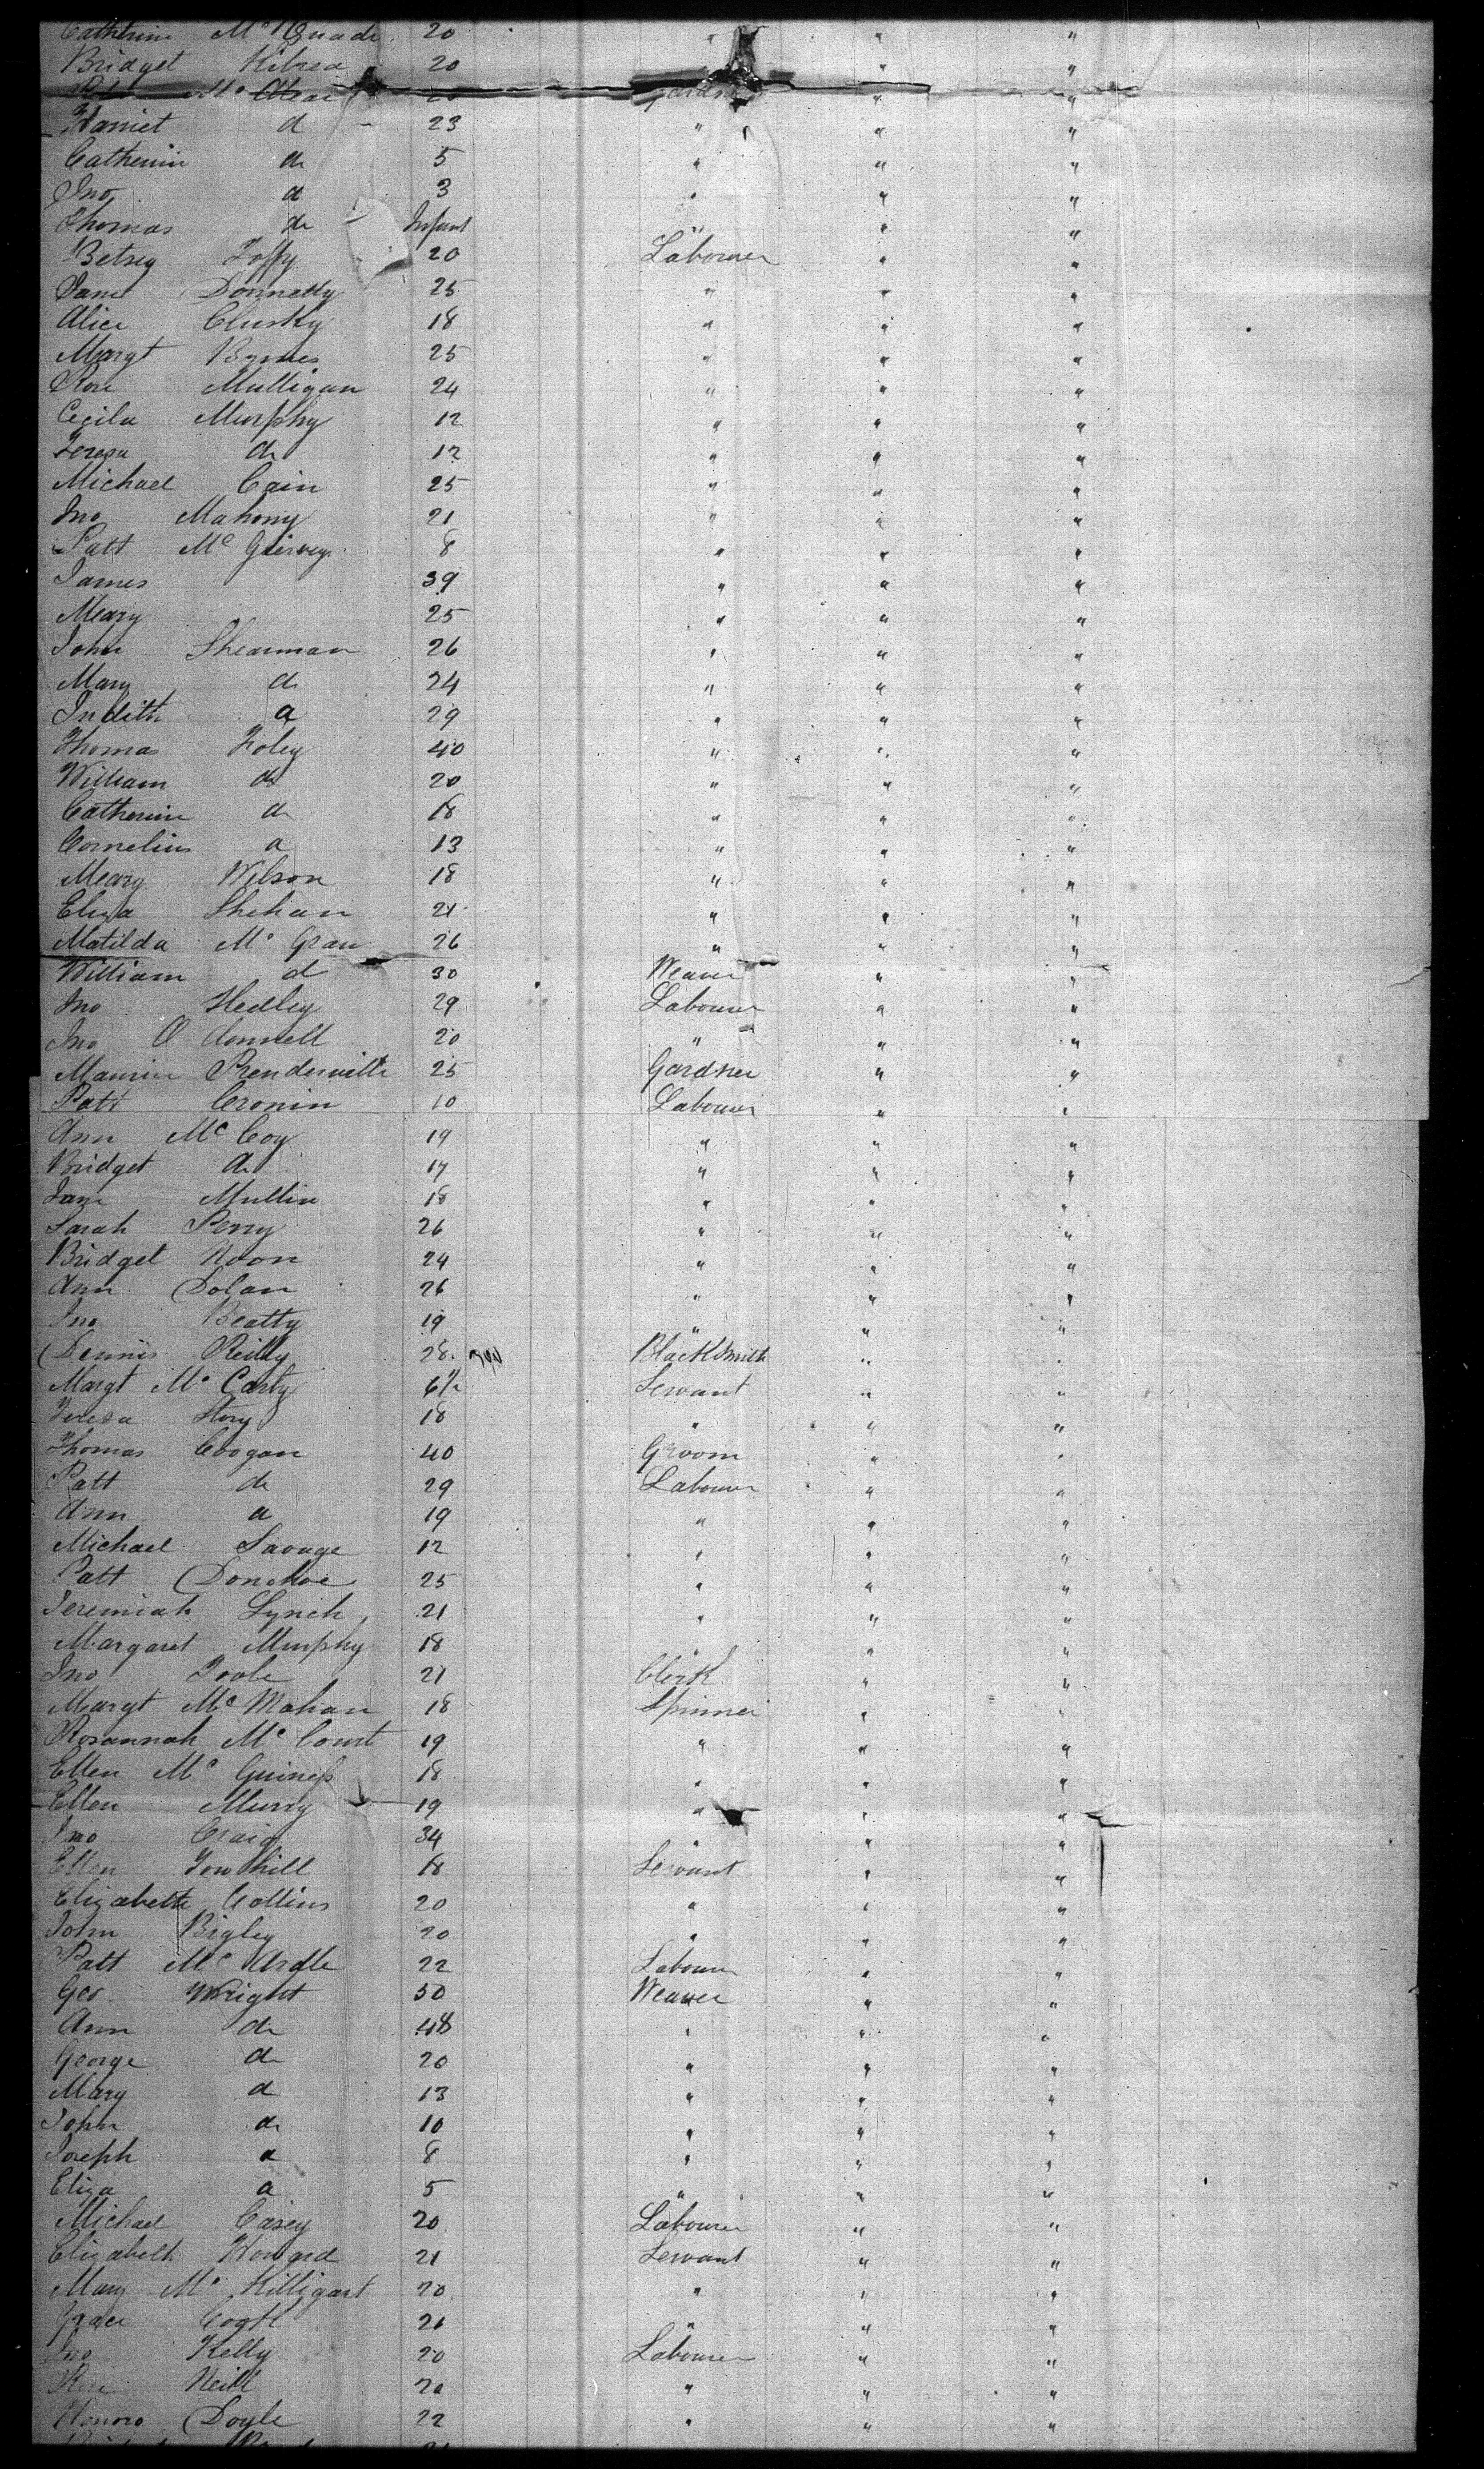 Catherine Mc Quade 20 " " "
Bridget Kilrea 20 " "
Mc 20 Gardner " "
Harriet d 23 " " "
Catherine do 5 " " "
Jno d 3 " " "
Thomas do Infant " " "
Betsey Foffy 20 Labourer " "
Jane Donnelly 25 " " "
Alice Clusky 18 " " "
Margt Byrnes 25 " " "
Rose Mulligan 24 " " "
Cecila Murphy 12 " " "
Teresa do 12 " " "
Michael Cain 25 " " "
Jno Mahony 21 " " "
Patt Mc 8 " " "
James 39 " " "
Meary 25 " " "
John Shearman 26 " " "
Mary do 24 " " "
Judith a 29 " " "
Thomas Foley 40 " " "
William do 20 " " "
Catherine do 18 " " "
Cornelius a 13 " " "
Meary Wilson 18 " " "
Eliza Shehan 21 " " "
Matilda Mc Graw 26 " " "
William d 30 Weaver " "
Jno Hedley 29 Labourer " "
Jno O donnell 20 " " "
Maurice Prenderville 25 Gardner " "
Patt Cronin 10 Labourer " "
Ann Mc Coy 19 " " "
Bridget do 17 " " "
Jane Mullin 18 " " "
Sarah Perry 26 " " "
Bridget Noon 24 " " "
Ann Dolan 26 " " "
Jno Beatty 19 " " "
Dennis Reilly 28 Blacksmith " "
Margt Mc Carty 6½ Servant " "
Teresa Story 18 " " "
Thomas Coogan 40 Groom " "
Patt do 29 Labourer " "
Ann a 19 " " "
Michael Savage 12 " " "
Patt Donohoe 25 " " "
Jeremiah Lynch 21 " " "
Margaret Murphy 18 " " "
Jno Toole 21 Clerk " "
Margt Mc Mahan 18 Spinner " "
Rosannah Mc Court 19 " " "
Ellen Mc Guiness 18 " " "
Ellen Murry 19 " " "
Jno Craig 34 " " "
Ellen Towhill 18 Servant " "
Elizabeth Collins 20 " " "
John Bigley 20 " " "
Patt Mc Ardle 22 Labourer " "
Geo Wright 50 Weaver " "
Ann do 48 " " "
George do 20 " " "
Mary d 13 " " "
John do 10 " " "
Joseph a 8 " " "
Eliza a 5 " " "
Michael Casey 20 Labourer " "
Elizabeth Howard 21 Servant " "
Mary Mc Killigart 20 " " "
Grace Cook 21 " " "
Jno Kelly 20 Labourer " "
Rose Neill 20 " " "
Honoro Doyle 22 " " "